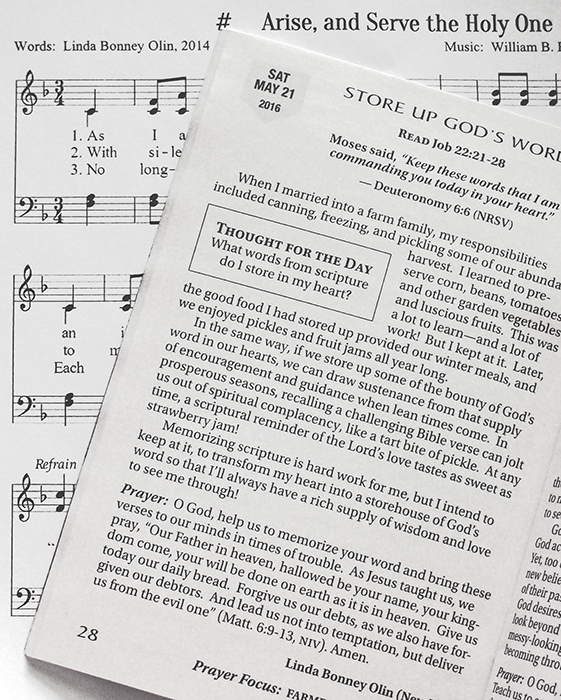 # Arise, and Serve the Holy One
Words: Linda Bonney Olin, 2014
Music: William B.
1. As I a
2. With si - le
3. No long-
an i
to m
Each
Refrain
SAT
MAY 21
2016
STORE UP GOD'S WORD
READ Job 22:21-28
Moses said, "Keep these words that I am
commanding you today in your heart."
— Deuteronomy 6:6 (NRSV)
When I married into a farm family, my responsibilities
included canning, freezing, and pickling some of our abunda
harvest. I learned to pre-
serve corn, beans, tomatoes
and other garden vegetables
and luscious fruits. This was
a lot to learn—and a lot of
work! But I kept at it. Later,
THOUGHT FOR THE DAY
What words from scripture
do I store in my heart?
the good food I had stored up provided our winter meals, and
we enjoyed pickles and fruit jams all year long.
In the same way, if we store up some of the bounty of God's
word in our hearts, we can draw sustenance from that supply
of encouragement and guidance when lean times come. In
prosperous seasons, recalling a challenging Bible verse can jolt
us out of spiritual complacency, like a tart bite of pickle. At any
time, a scriptural reminder of the Lord's love tastes as sweet as
strawberry jam!
Memorizing scripture is hard work for me, but I intend to
keep at it, to transform my heart into a storehouse of God's
word so that I'll always have a rich supply of wisdom and love
to see me through!
Prayer: O God, help us to memorize your word and bring these
verses to our minds in times of trouble. As Jesus taught us, we
pray, "Our Father in heaven, hallowed be your name, your king-
dom come, your will be done on earth as it is in heaven. Give us
today our daily bread. Forgive us our debts, as we also have for-
given our debtors. And lead us not into temptation, but deliver
us from the evil one" (Matt. 6:9-13, NIV). Amen.
28
Linda Bonney Olin (New
Prayer Focus: FARME
th
to n
to se
God
God ac
Yet, too
new belie
of their pas
God desires
look beyond
messy-looking
becoming thro
Prayer: O God,
Teach us to